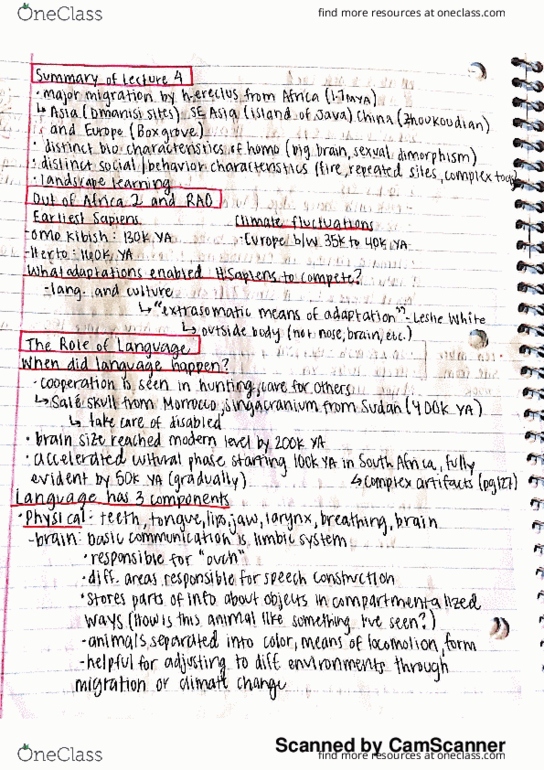 OneClass
find more resources at oneclass.com
Summary of Lecture 4
· major migration by h.erectus from Africa (1.7 MYA)
↳ Asia (Dmanisi sites) SE Asia (island of Java) China (Zhoukoudian)
and Europe (Boxgrove)
· distinct bio characteristics of homo (big brain, sexual dimorphism)
· distinct social/behavior characteristics (fire, repeated sites, complex tools
· landscape learning
Out of Africa 2 and RAO
Earliest Sapiens Climate fluctuations
-Omo Kibish: 130K YA -Europe b/w 35K to 40K YA
-Herto: 160K YA
What adaptations enabled H.Sapiens to compete?
-lang. and culture
↳ "extrasomatic means of adaptation" - Leslie White
↳ outside body (not nose, brain, etc.)
The Role of Language
When did language happen?
· cooperation is seen in hunting, care for others
↳ Salé skull from Morrocco, singa cranium from Sudan (400K YA)
↳ take care of disabled
· brain size reached modern level by 200K YA
· accelerated cultural phase starting 100K YA in South Africa, fully
evident by 50K YA (gradually) ↳ complex artifacts (pg 171)
Language has 3 components
· Physical - teeth, tongue, lips, jaw, larynx, breathing, brain
-brain: basic communication is limbic system
· responsible for "ouch"
· diff. areas responsible for speech construction
· stores parts of info about objects in compartmentalized
ways (How is this animal like something I've seen?)
-animals separated into color, means of locomotion, form
-helpful for adjusting to diff environments through
migration or climate change
Scanned by CamScanner
OneClass
find more resources at oneclass.com